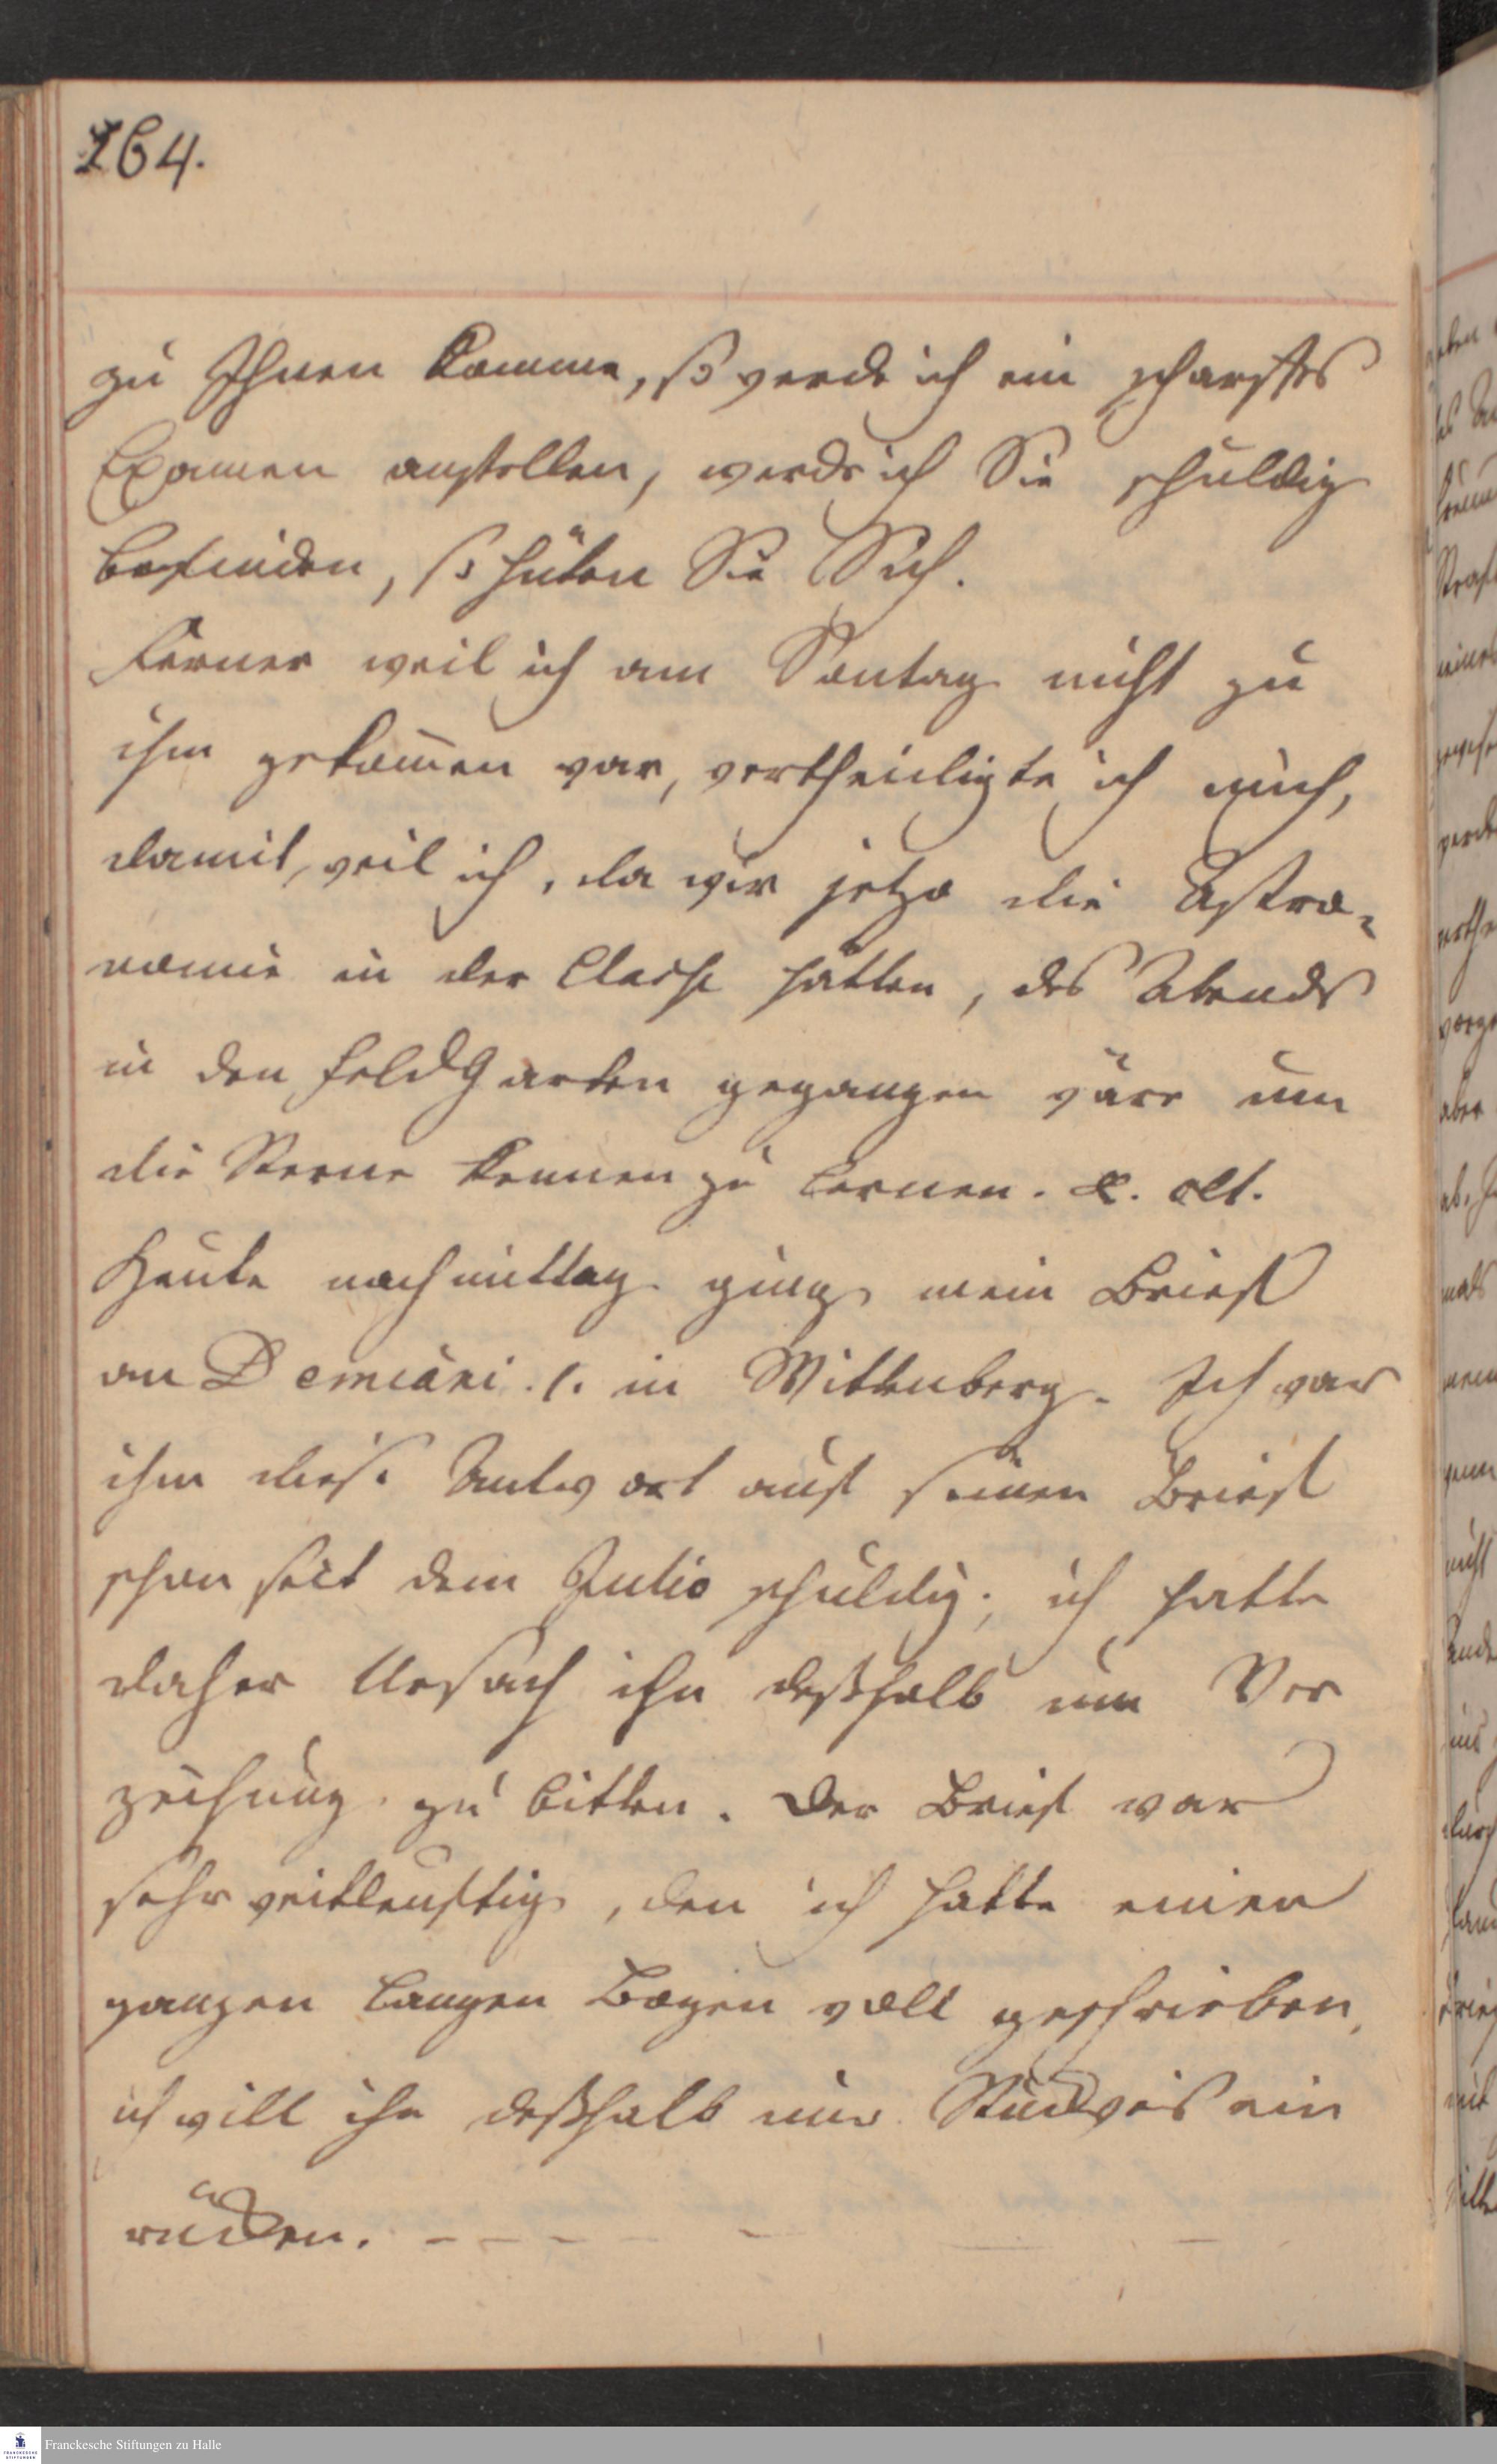 264.
zu Ihnen komme, so werde ich ein scharffes
Examen anstellen, werde ich Sie schuldig
befinden, so hüten Sie Sich.
Ferner weil ich am Sontag nicht zu
ihm gekom̄en war, vertheidigte ich mich,
damit, weil ich, da wir jetzo die Astro-
nomie in der Classe hätten, des Abends
in den FeldGarten gegangen wäre um
die Sterne kennen zu lernen. &. &lt.
Heute nachmittag ging mein Brief
an Demiani. 1. in Wittenberg. Ich war
ihm diese Antwort auf seinen Brief
schon seit dem Julio schuldig; ich hatte
daher Ursach ihn deßhalb um Ver
zeihung zu bitten. Der Brief war
sehr weitleuftig, den ich hatte einen
ganzen langen Bogen voll geschrieben,
ich will ihn deßhalb nur Stückweis ein
rücken. - - - - -
Franckesche Stiftungen zu Halle
FRANCKESCHE
STIFTUNGEN